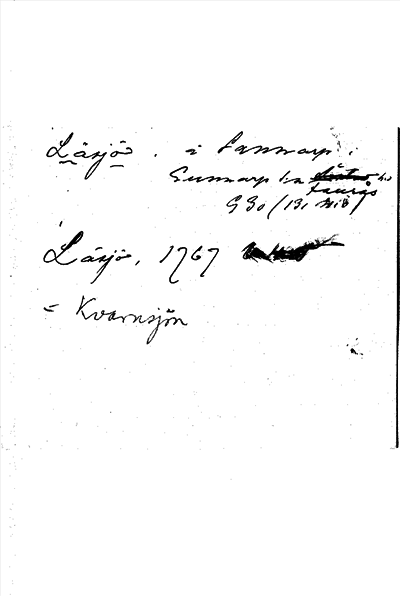 Läsjö . i Sannarp i
Gunnarp sn
Faurås hd
G 30 / 131
Läsjö, 1767
= Kvarnsjön